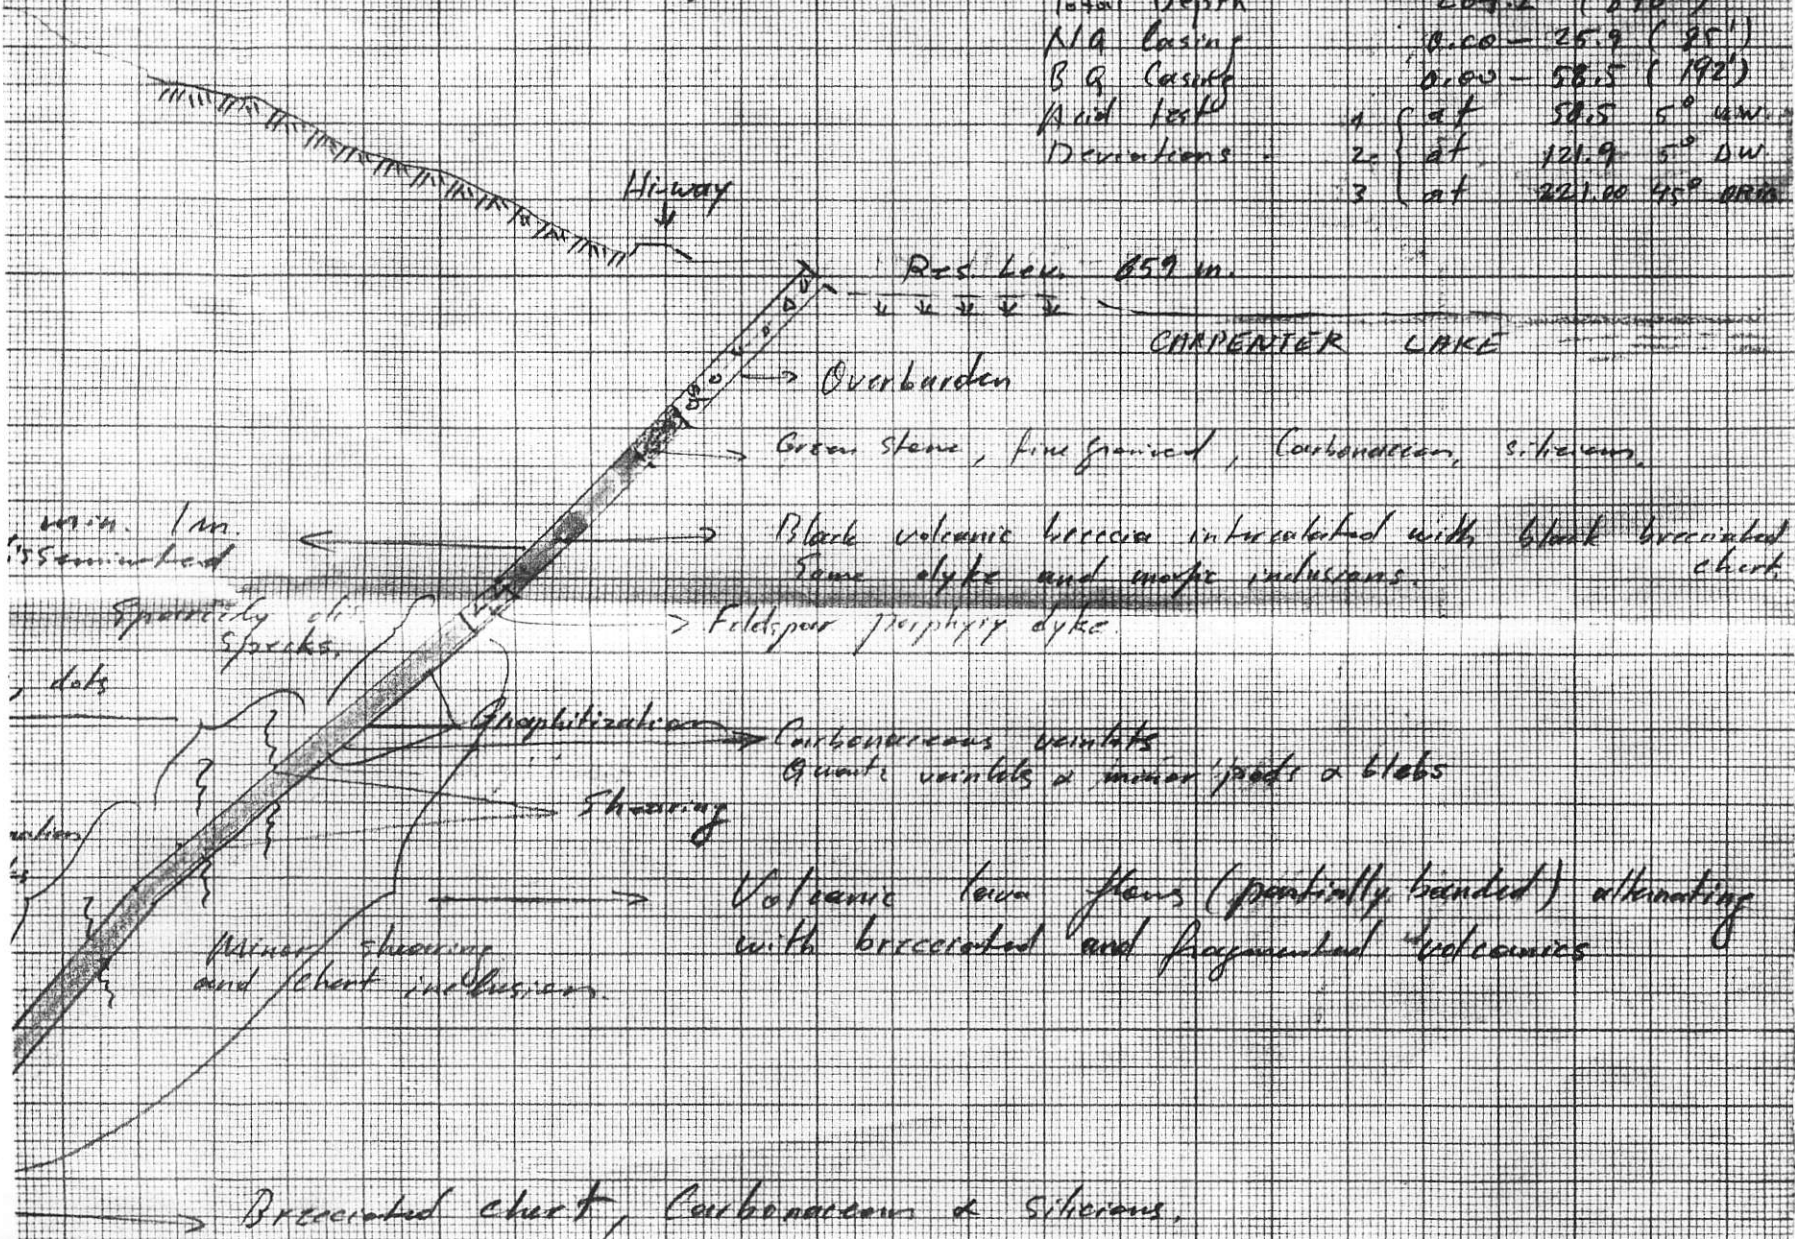 Total Depth
NQ Casing 0.00 - 25.9 (85')
BQ Casing 0.00 - 58.5 (192')
Acid test 1 at 58.5 5°
Deviations 2. at 121.9 5° DW.
3 at 221.00 45°
Hi-way
Res. Lev. 659 m.
CARPENTER LAKE
Overburden
Green stone, fine grained, Carbonaceous, silicious.
min. 1m.
Black volcanic breccia intercalated with black brecciated
chert.
Some dyke and mafic inclusions.
specks.
Feldspar porphyry dyke.
, dots
Graphitization
Carbonaceous veinlets
Quartz veinlets & minor pods & blebs
Shearing
Volcanic lava flows (partially banded) alternating
with brecciated and fragmented volcanics
Minor shearing
and chert inclusions.
Brecciated chert, Carbonaceous & silicious.